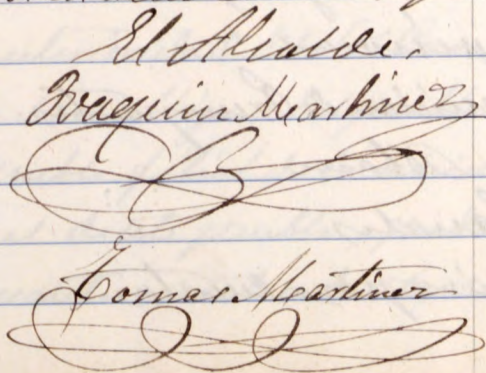 El Alcalde.
Joaquin Martinez
Tomas Martinez